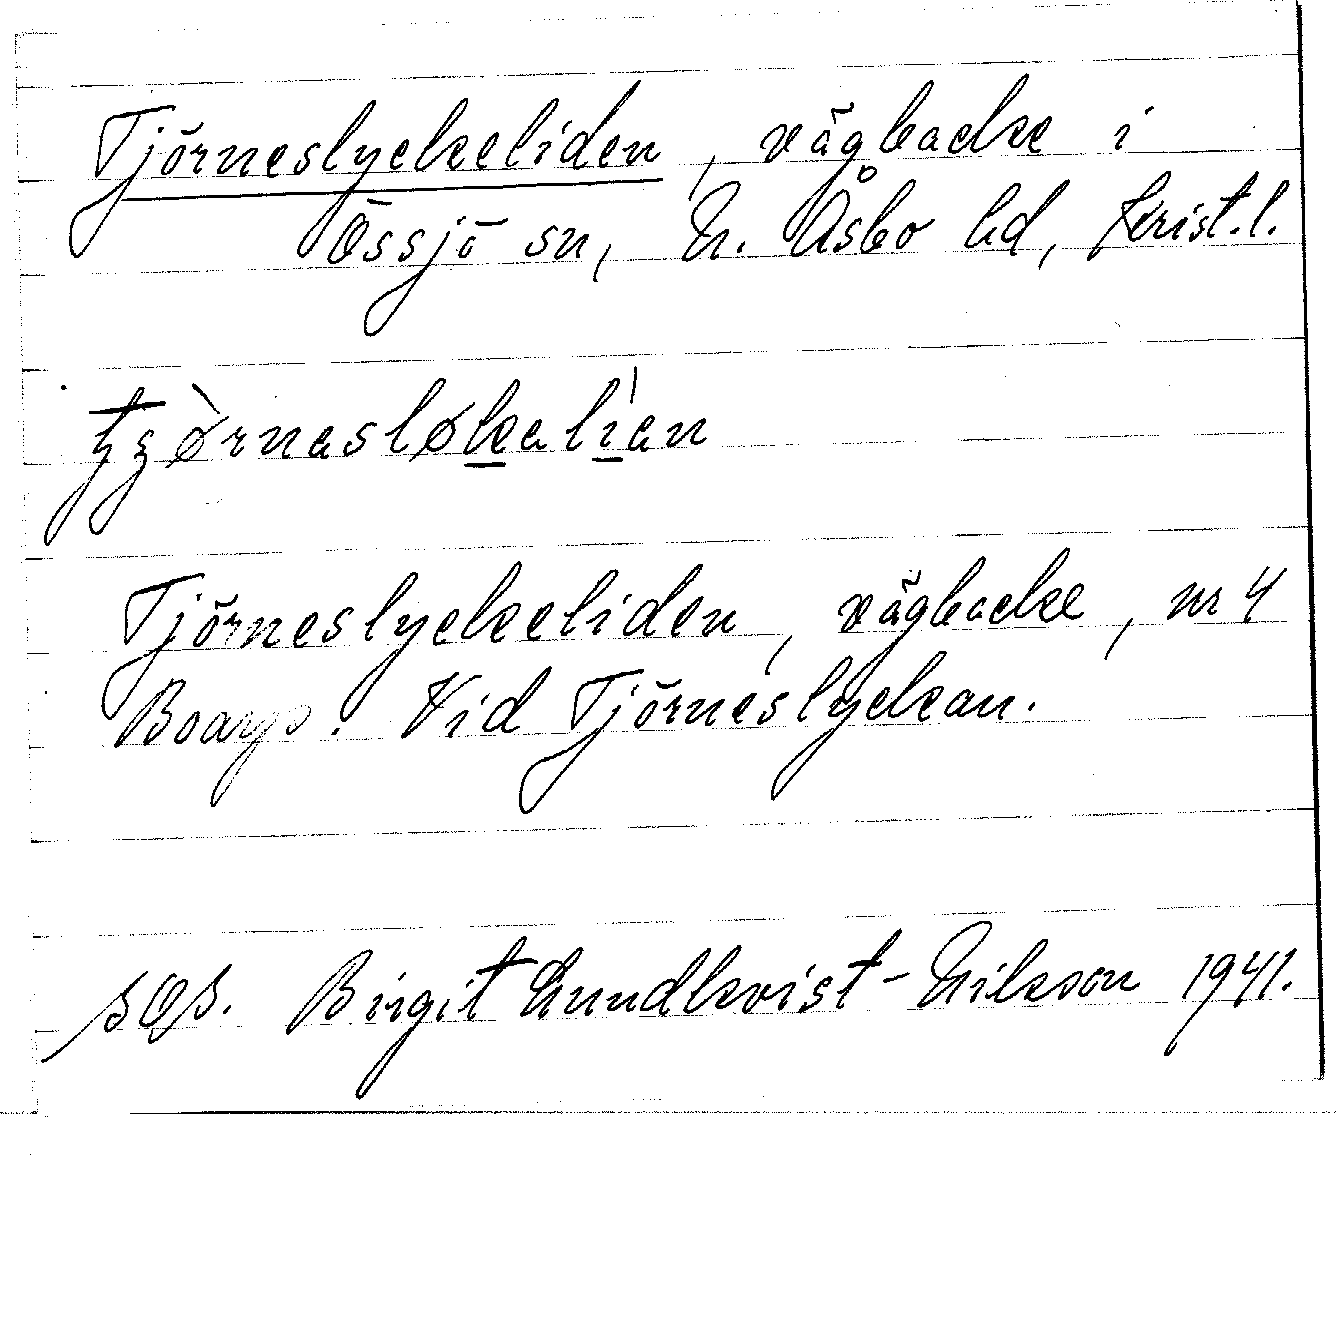 Tjörneslyckeliden, vägbacke i
Össjö sn, N. Åsbo hd, Krist.l.
Tjörneslyckeliden, vägbacke, nr 4
Boarp. Vid Tjörneslyckan.
Birgit Lundkvist-Nilsson 1941.